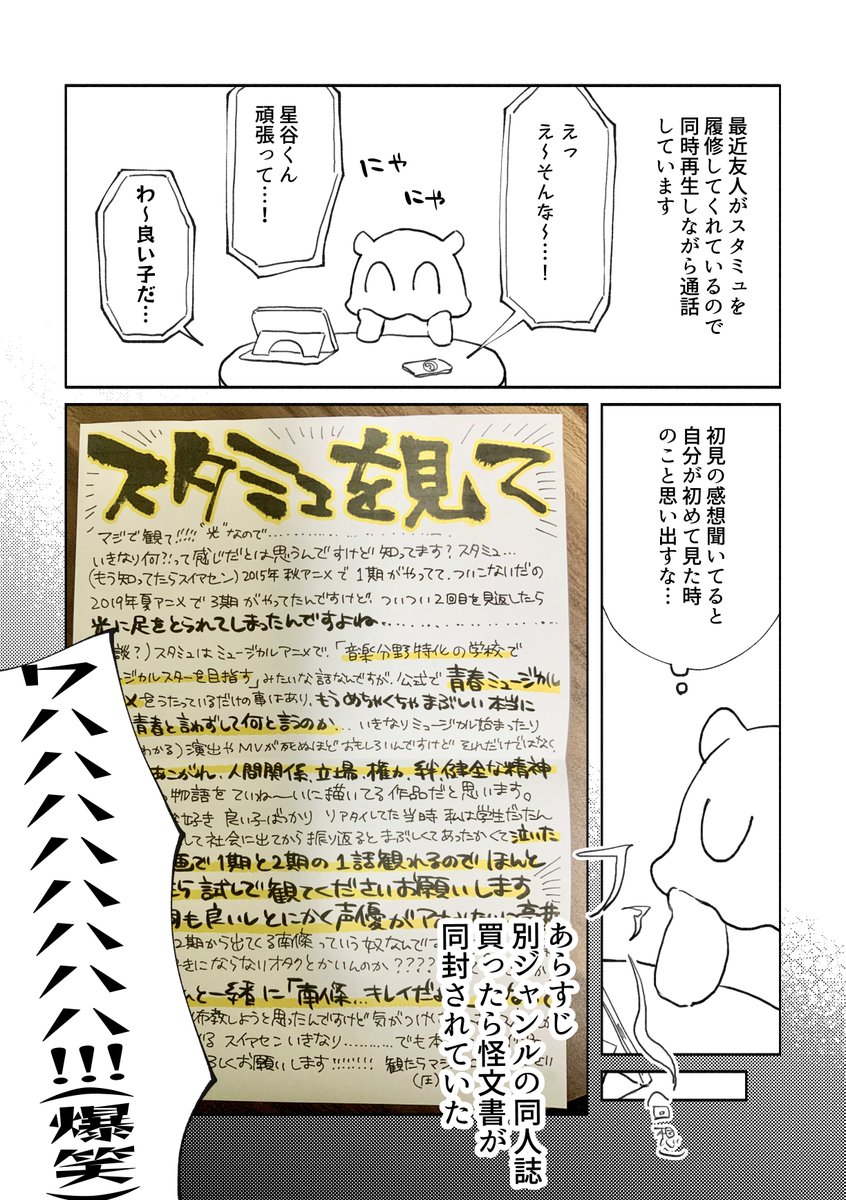 最近友人がスタミュを
履修してくれているので
同時再生しながら通話
しています
えっ
え〜そんな〜…!
にゃ
にゃ
星谷くん
頑張って…!
わ〜良い子だ…
初見の感想聞いてると
自分が初めて見た時
のこと思い出すな…
スタミュを見て
マジで観て!!!! "光"なので
いきなり何?!って感じだとは思うんですけど知ってます?スタミュ…
(もう知ってたらスイマセン)2015年秋アニメで1期がやってて、ついこないだの
2019年夏アニメで3期がやってたんですけど、ついつい2回目を見返したら
光に足をとられてしまったんですよね
談?)スタミュはミュージカルアニメで、「音楽分野特化の学校で
ジカルスターを目指す」みたいな話なんですが、公式で青春ミュージカル
をうたっているだけの事はあり、もうめちゃくちゃまぶしい本当に
青春と言わずして何と言うのか…いきなりミュージカル始まったり
わかる)演出やMVが死ぬほどおもしろいんですけどそれだけではなく、
あこがれ、人間関係、立場、権力、絆、健全な精神
物語をていね〜いに描いてる作品だと思います。
な好き 良い子ばっかり リアタイしてた当時私は学生だったん
して社会に出てから振り返るとまぶしくてあったかくて泣いた
画で1期と2期の1話観れるのでほんと
試しで観てくださいお願いします
も良いしとにかく声優が
2期から出てくる南條っていう奴なんで
きにならないオタクとかいんのか????
と一緒に「南條…キレイだよ
布教しようと思ったんですけど気がつけ
スイマセンいきなり………でも本
しくお願いします!!!!!!!! 観たらマジ
(圧)
フッ
回想
あらすじ
別ジャンルの同人誌
買ったら怪文書が
同封されていた
ワハハハハハハハ!!!(爆笑)